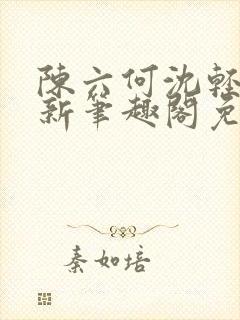 陳六何沈輕
新筆趣閣免
秦如培